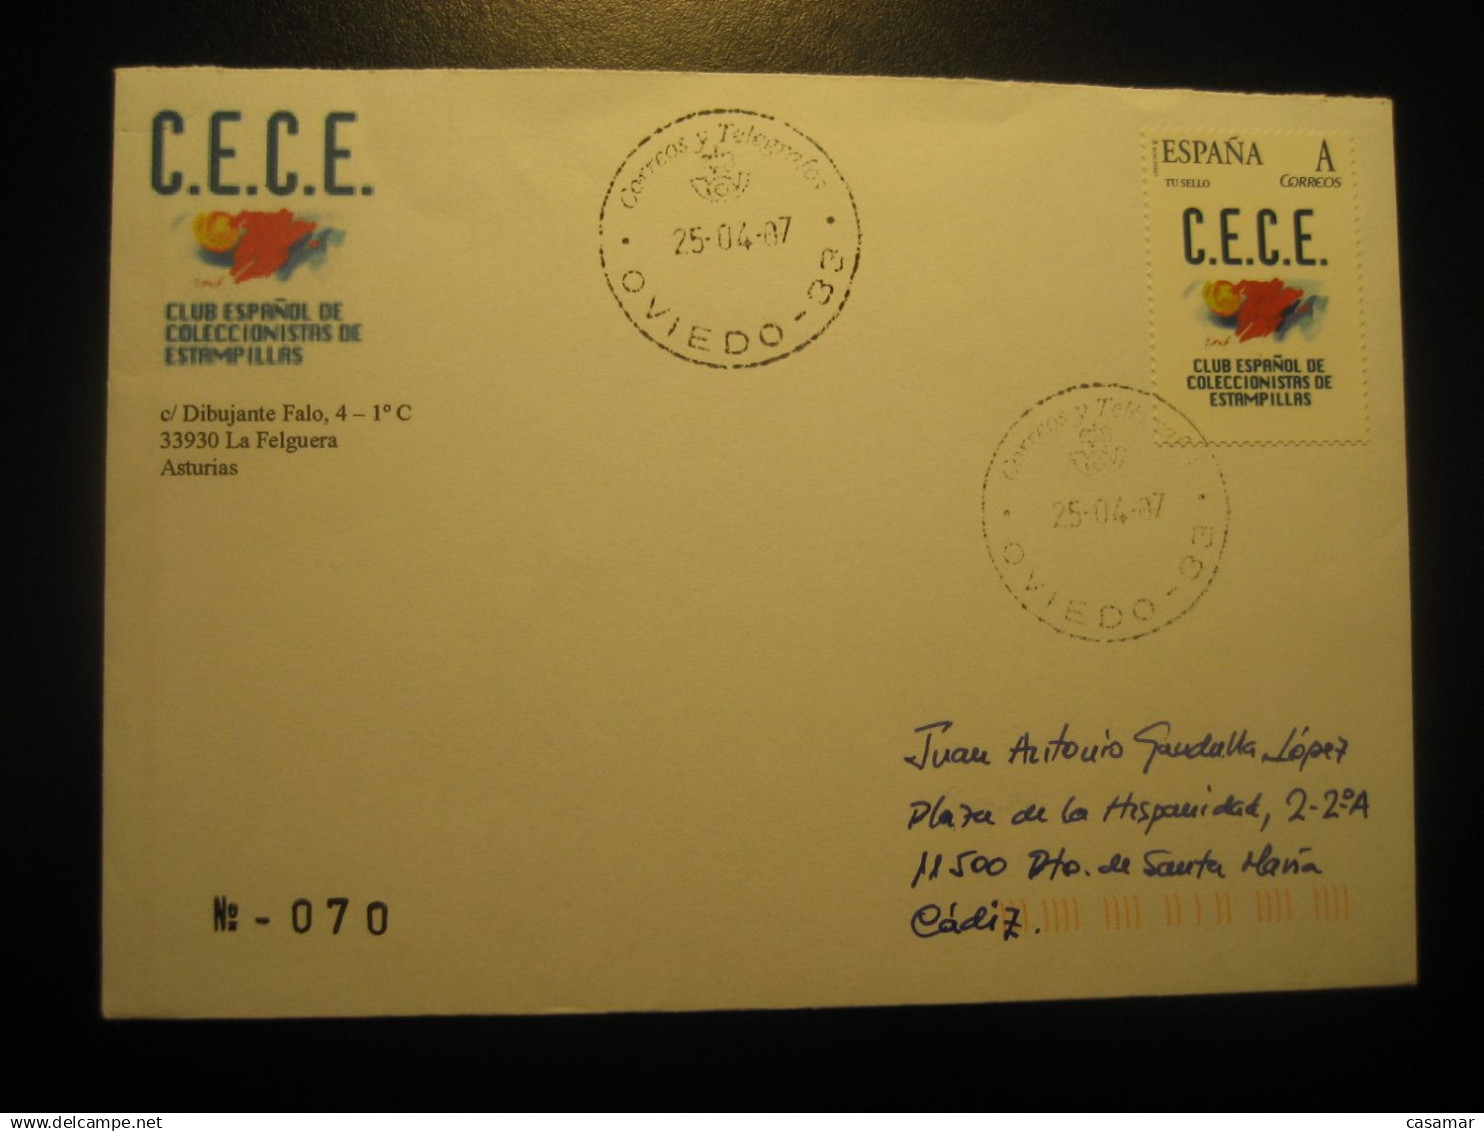 C.E.C.E.
CLUB ESPAÑOL DE
COLECCIONISTAS DE
ESTAMPILLAS
c/ Dibujante Falo, 4 – 1º C
33930 La Felguera
Asturias
Correos y Telegrafos
25-04-07
OVIEDO - 33
ESPAÑA A
TU SELLO CORREOS
C.E.C.E.
CLUB ESPAÑOL DE
COLECCIONISTAS DE
ESTAMPILLAS
Correos y
25-04-07
OVIEDO - 33
Juan Antonio Gandulla López
Plaza de la Hispanidad, 2-2ºA
11500 Pto. de Santa María
Cádiz.
Nº - 070
casamar